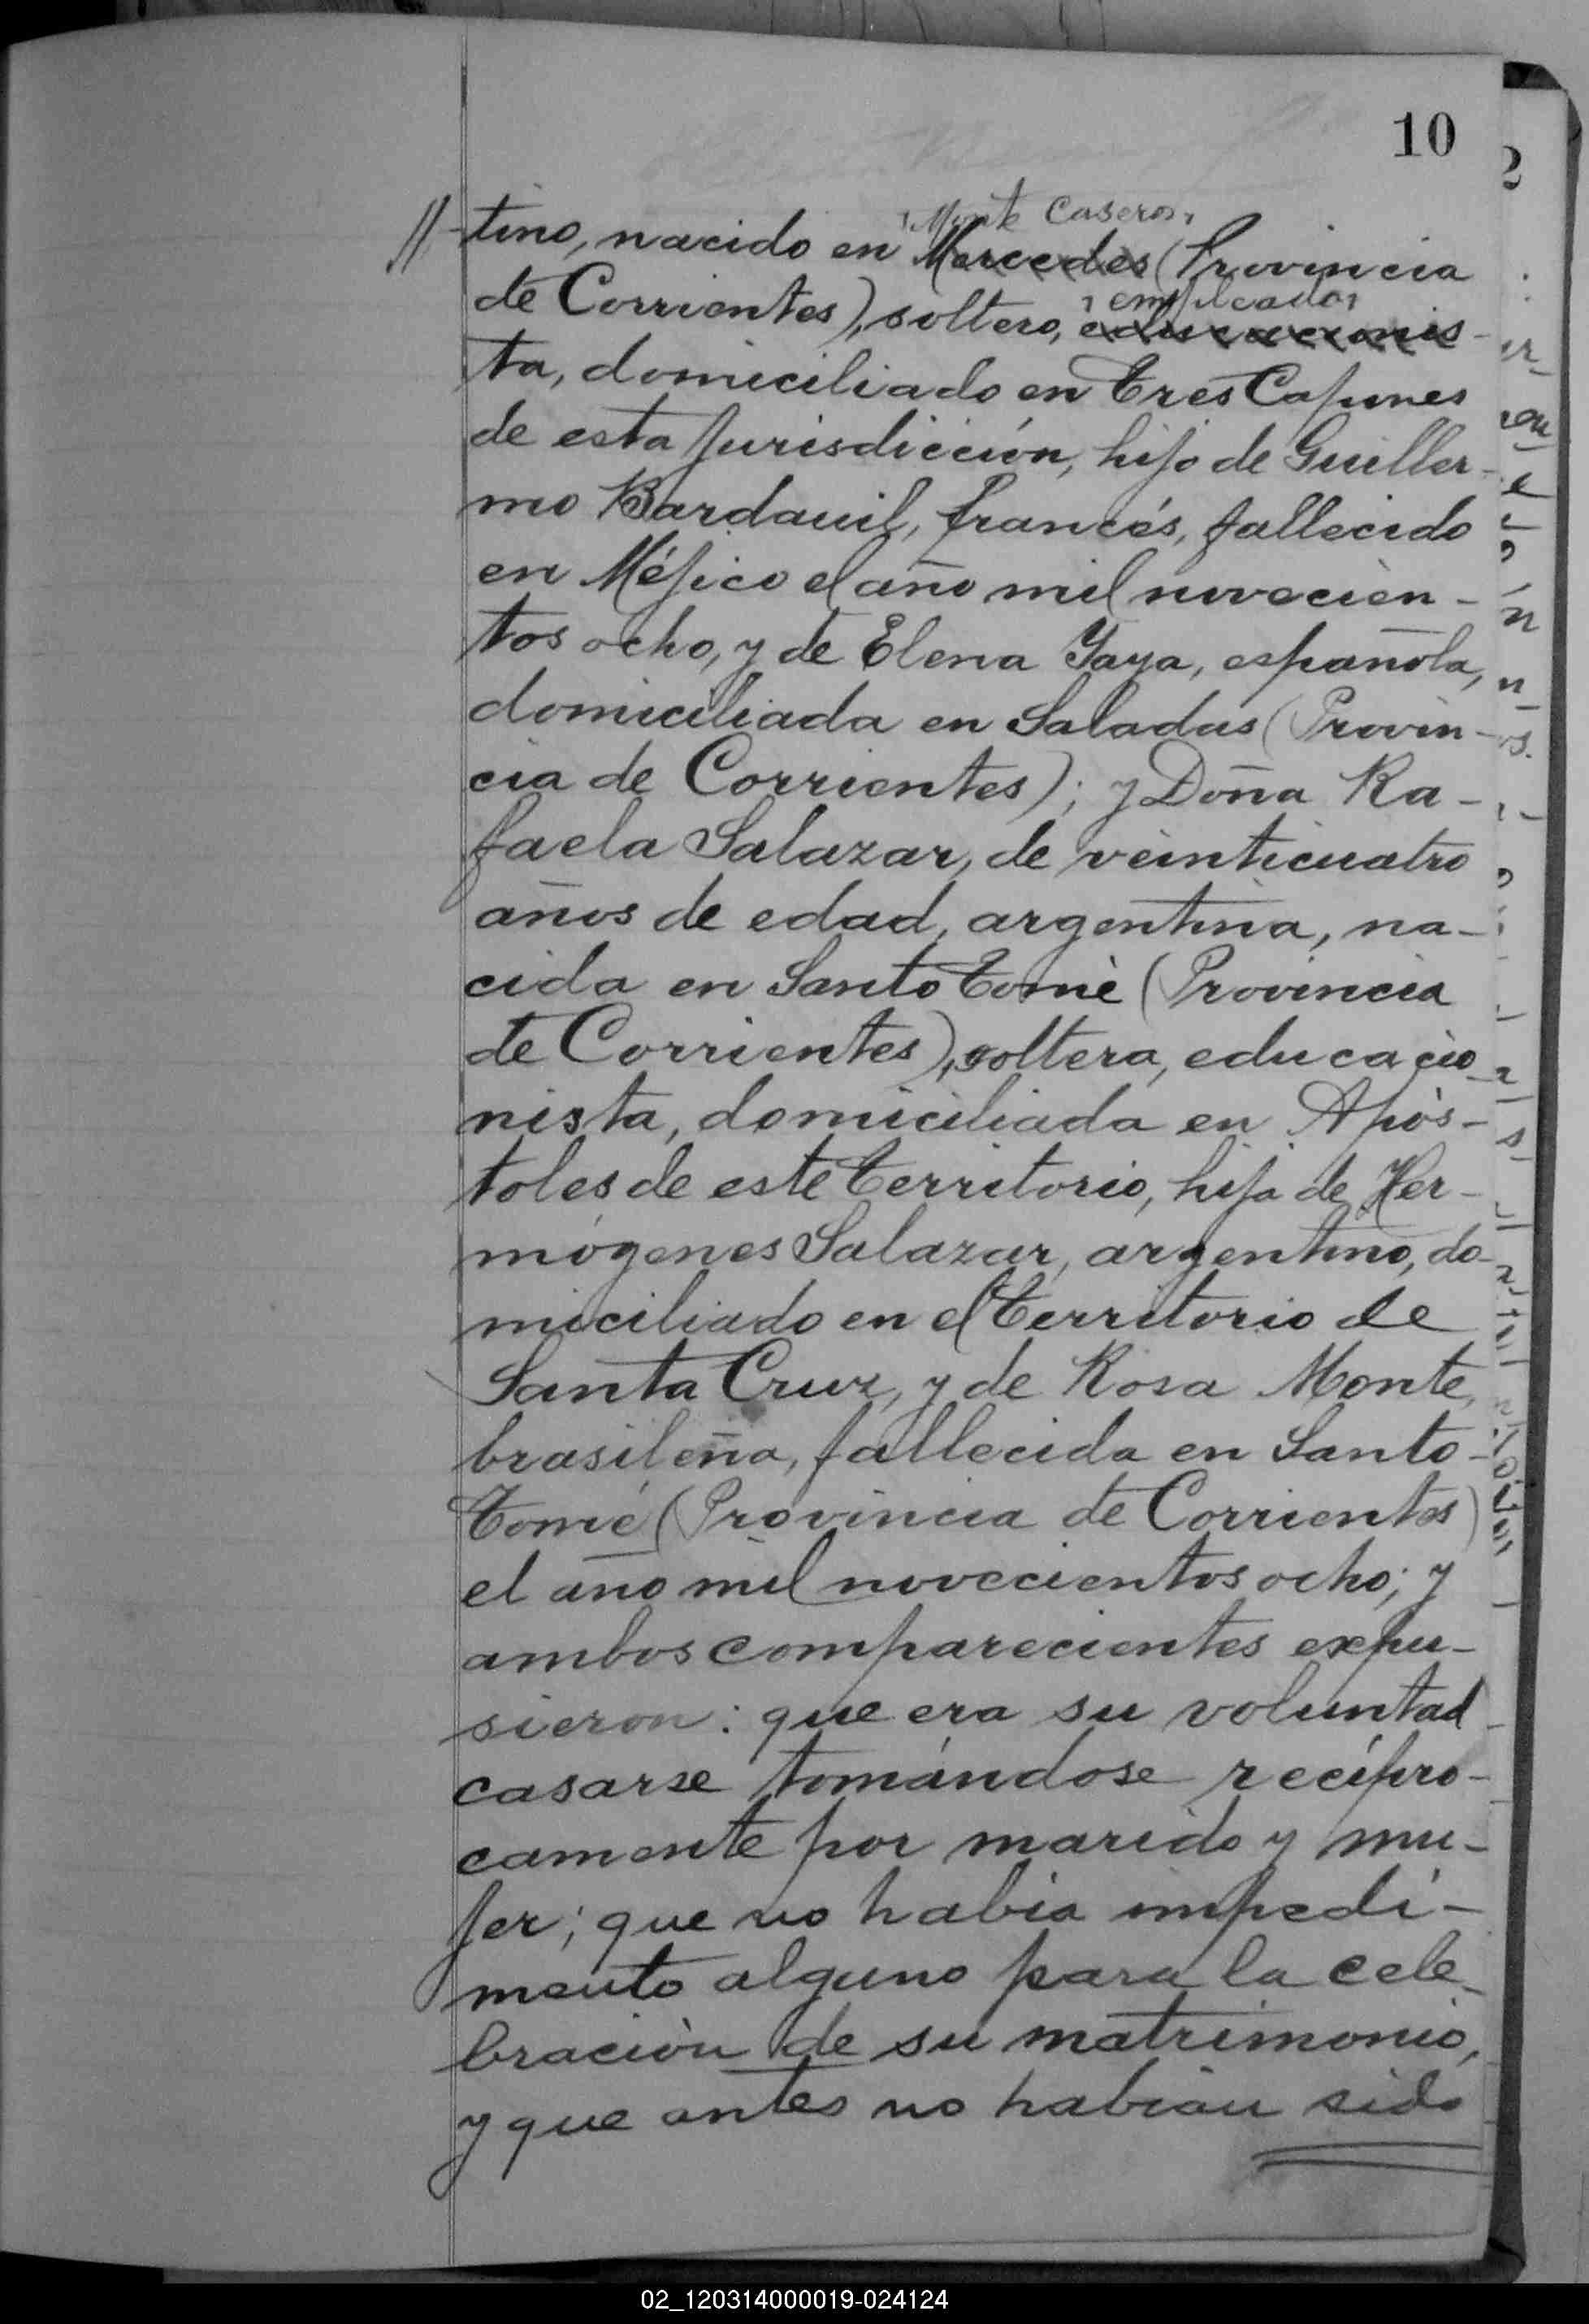 10
"Monte Caseros"
//-tino, nacido en Mercedes (Provincia
"empleado"
de Corrientes), soltero, educacionis-
ta, domiciliado en Tres Capones
de esta jurisdicción, hijo de Guiller-
mo Bardauil, francés, fallecido
en Méjico el año mil novecien-
tos ocho, y de Elena Yaya, española,
domiciliada en Saladas (Provin-
cia de Corrientes); y Doña Ra-
faela Salazar, de veinticuatro
años de edad, argentina, na-
cida en Santo Tomé (Provincia
de Corrientes), soltera, educacio-
nista, domiciliada en Após-
toles de este Territorio, hija de Her-
mógenes Salazar, argentino, do-
miciliado en el Territorio de
Santa Cruz, y de Rosa Monte,
brasileña, fallecida en Santo
Tomé (Provincia de Corrientes)
el año mil novecientos ocho; y
ambos comparecientes expu-
sieron: que era su voluntad
casarse tomándose recípro-
camente por marido y mu-
jer; que no habia impedi-
mento alguno para la cele-
bración de su matrimonio,
y que antes no habian sido
02_120314000019-024124